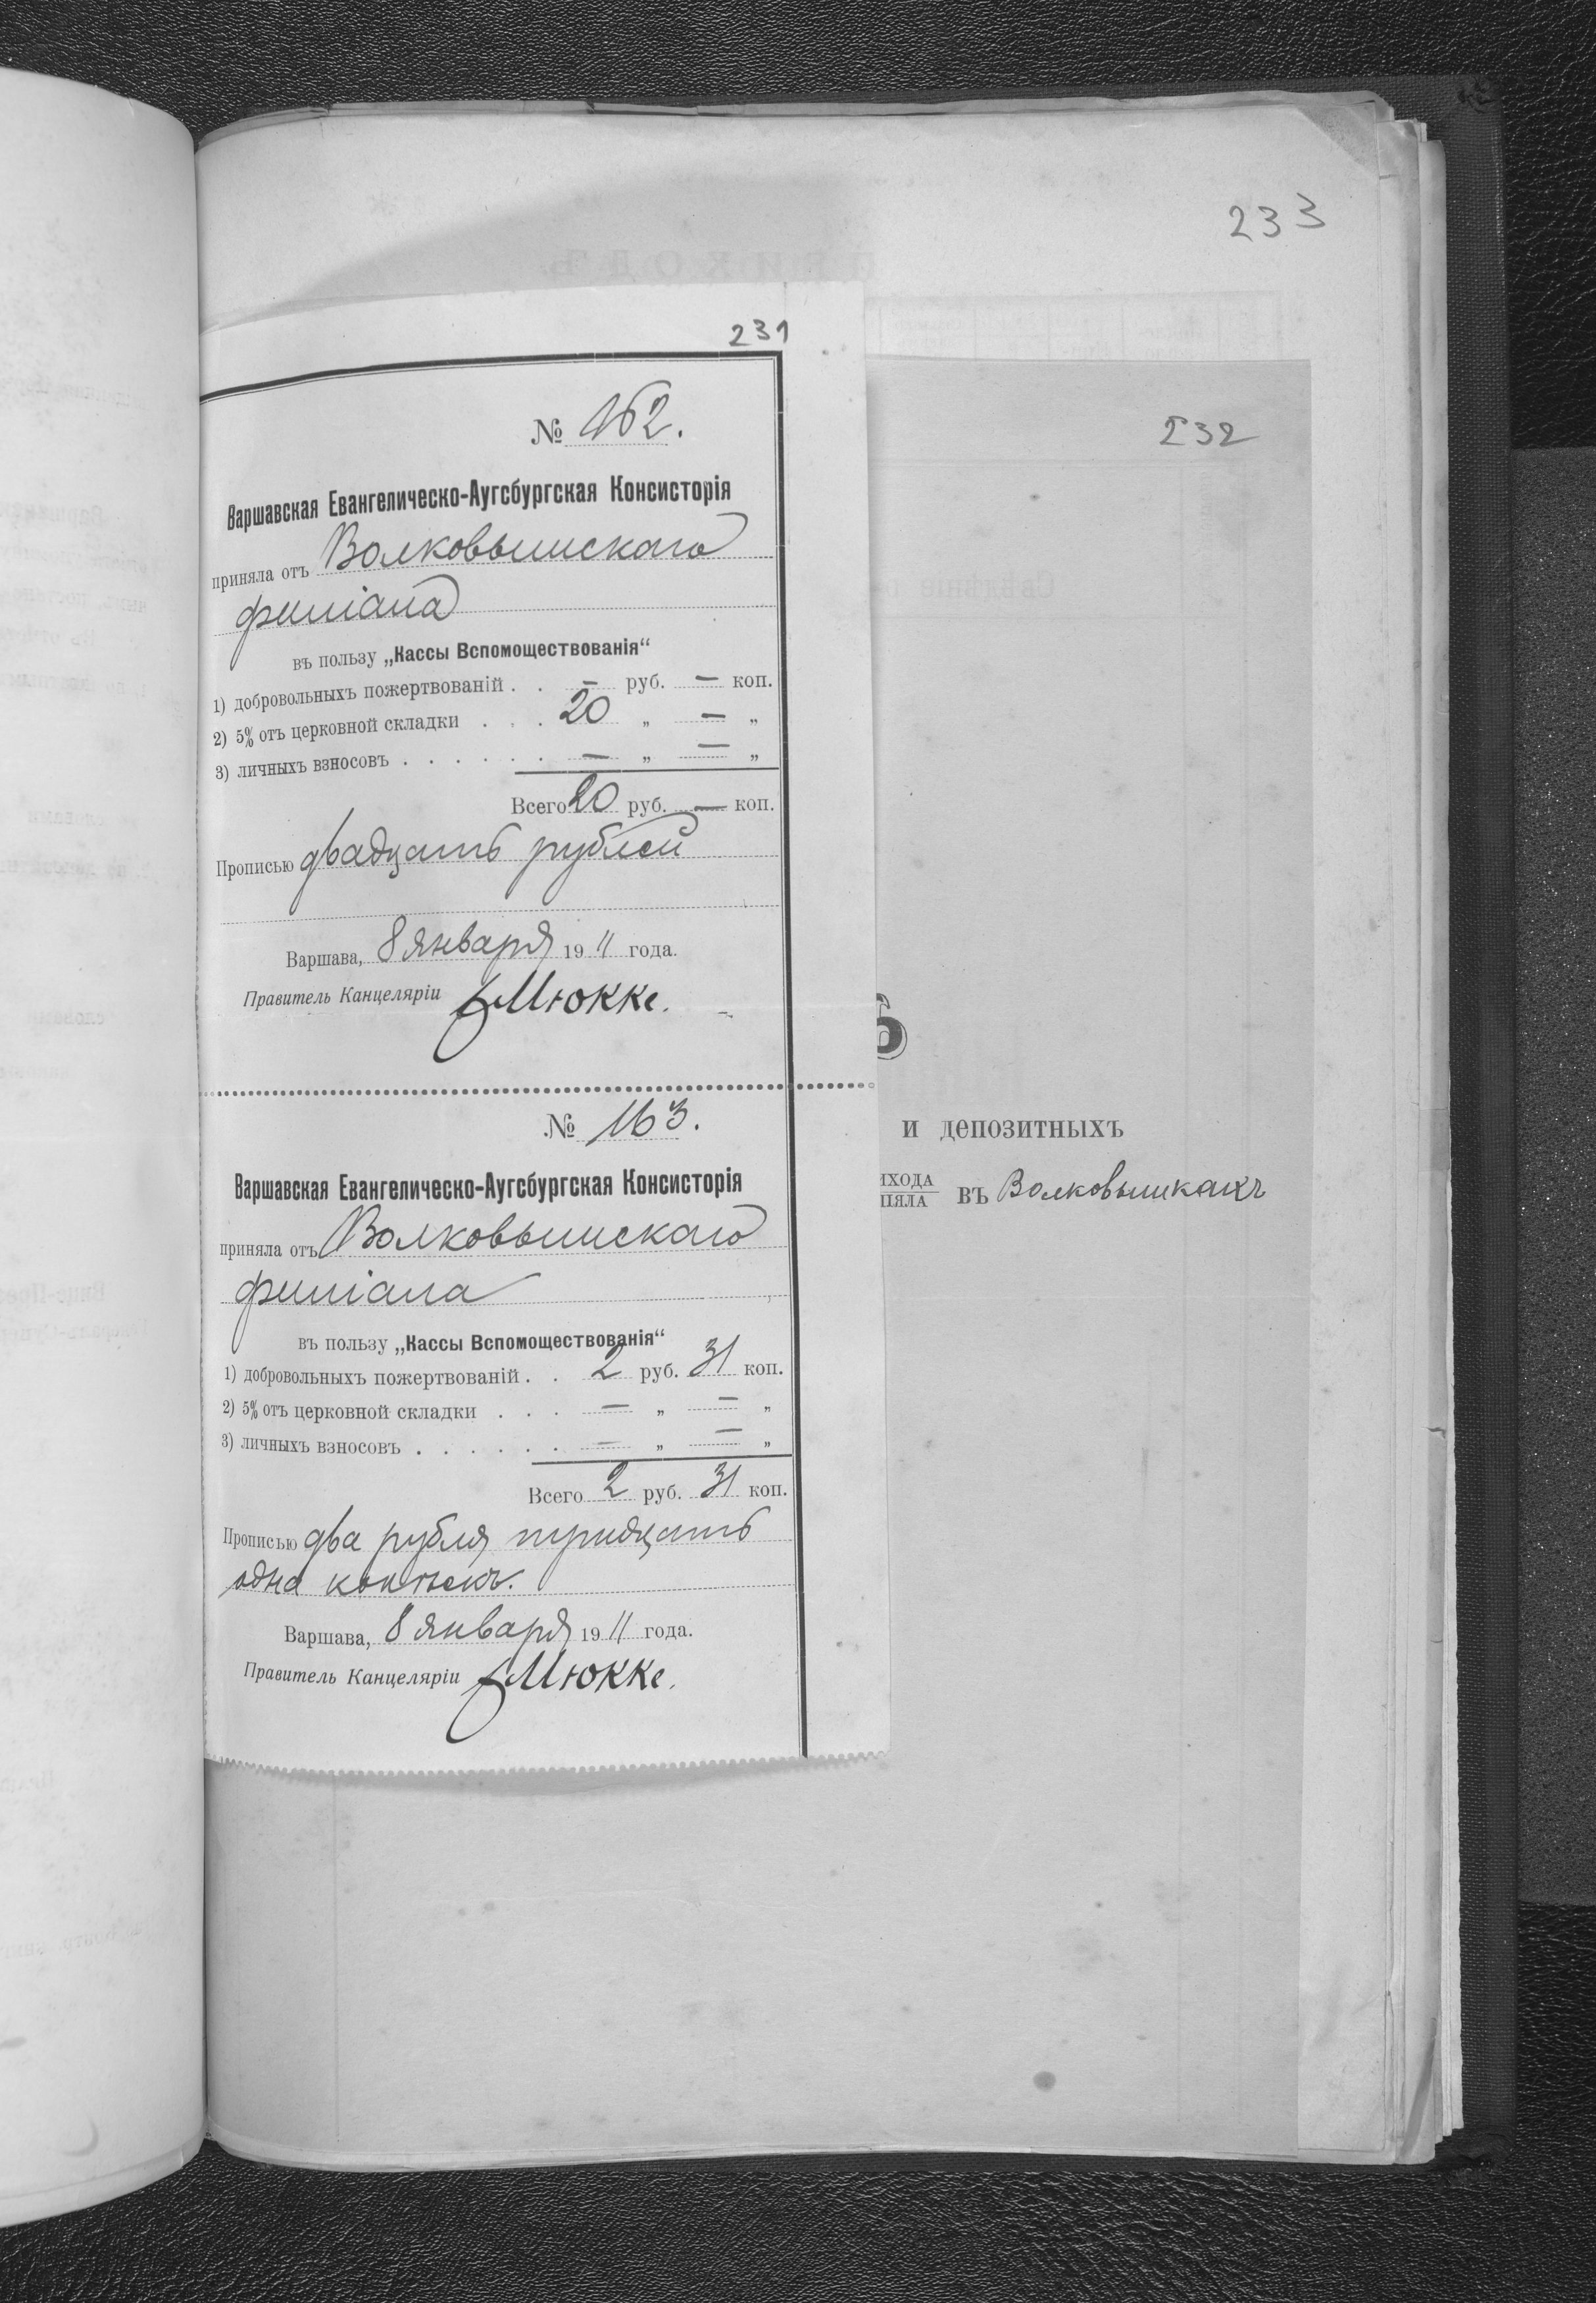 233
231
232
№ 162.
Варшавская Евангелическо-Аугсбургская Консисторія
приняла отъ Волковышскаго
филіала
въ пользу „Кассы Вспомоществованія“
1) добровольныхъ пожертвованій . . — руб. — коп.
2) 5% отъ церковной складки . . . 20 „ — „
3) личныхъ взносовъ . . . . . . — „ — „
Всего 20 руб. — коп.
Прописью двадцать рублей
Варшава, 8 января 1911 года.
Правитель Канцеляріи Мюкке.
№ 163.
Варшавская Евангелическо-Аугсбургская Консисторія
приняла отъ Волковышскаго
филіала
въ пользу „Кассы Вспомоществованія“
1) добровольныхъ пожертвованій . . 2 руб. 31 коп.
2) 5% отъ церковной складки . . . — „ — „
3) личныхъ взносовъ . . . . . . — „ — „
Всего 2 руб. 31 коп.
Прописью два рубля тридцать
одна копѣекъ.
Варшава, 8 января 1911 года.
Правитель Канцеляріи Мюкке.
и депозитныхъ
ихода
ліяла въ Волковышкахъ